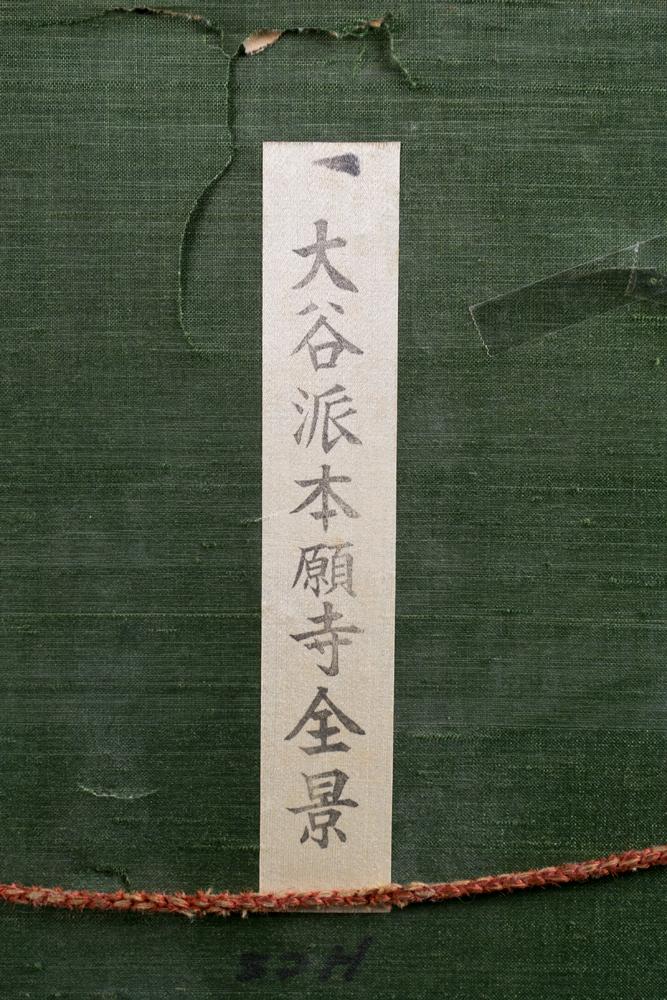 一
大谷派本願寺全景